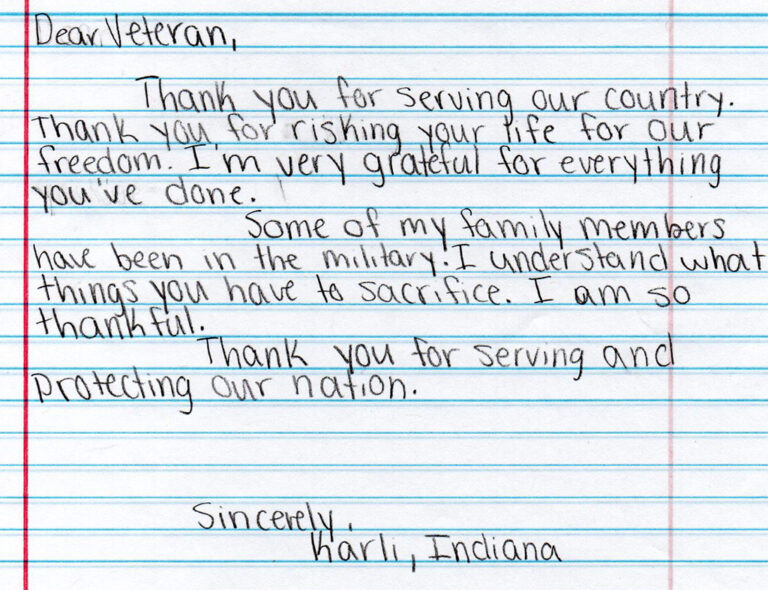 Dear Veteran,
Thank you for serving our country.
Thank you for risking your life for our
freedom. I'm very grateful for everything
you've done.
Some of my family members
have been in the military. I understand what
things you have to sacrifice. I am so
thankful.
Thank you for serving and
protecting our nation.
Sincerely,
Karli, Indiana